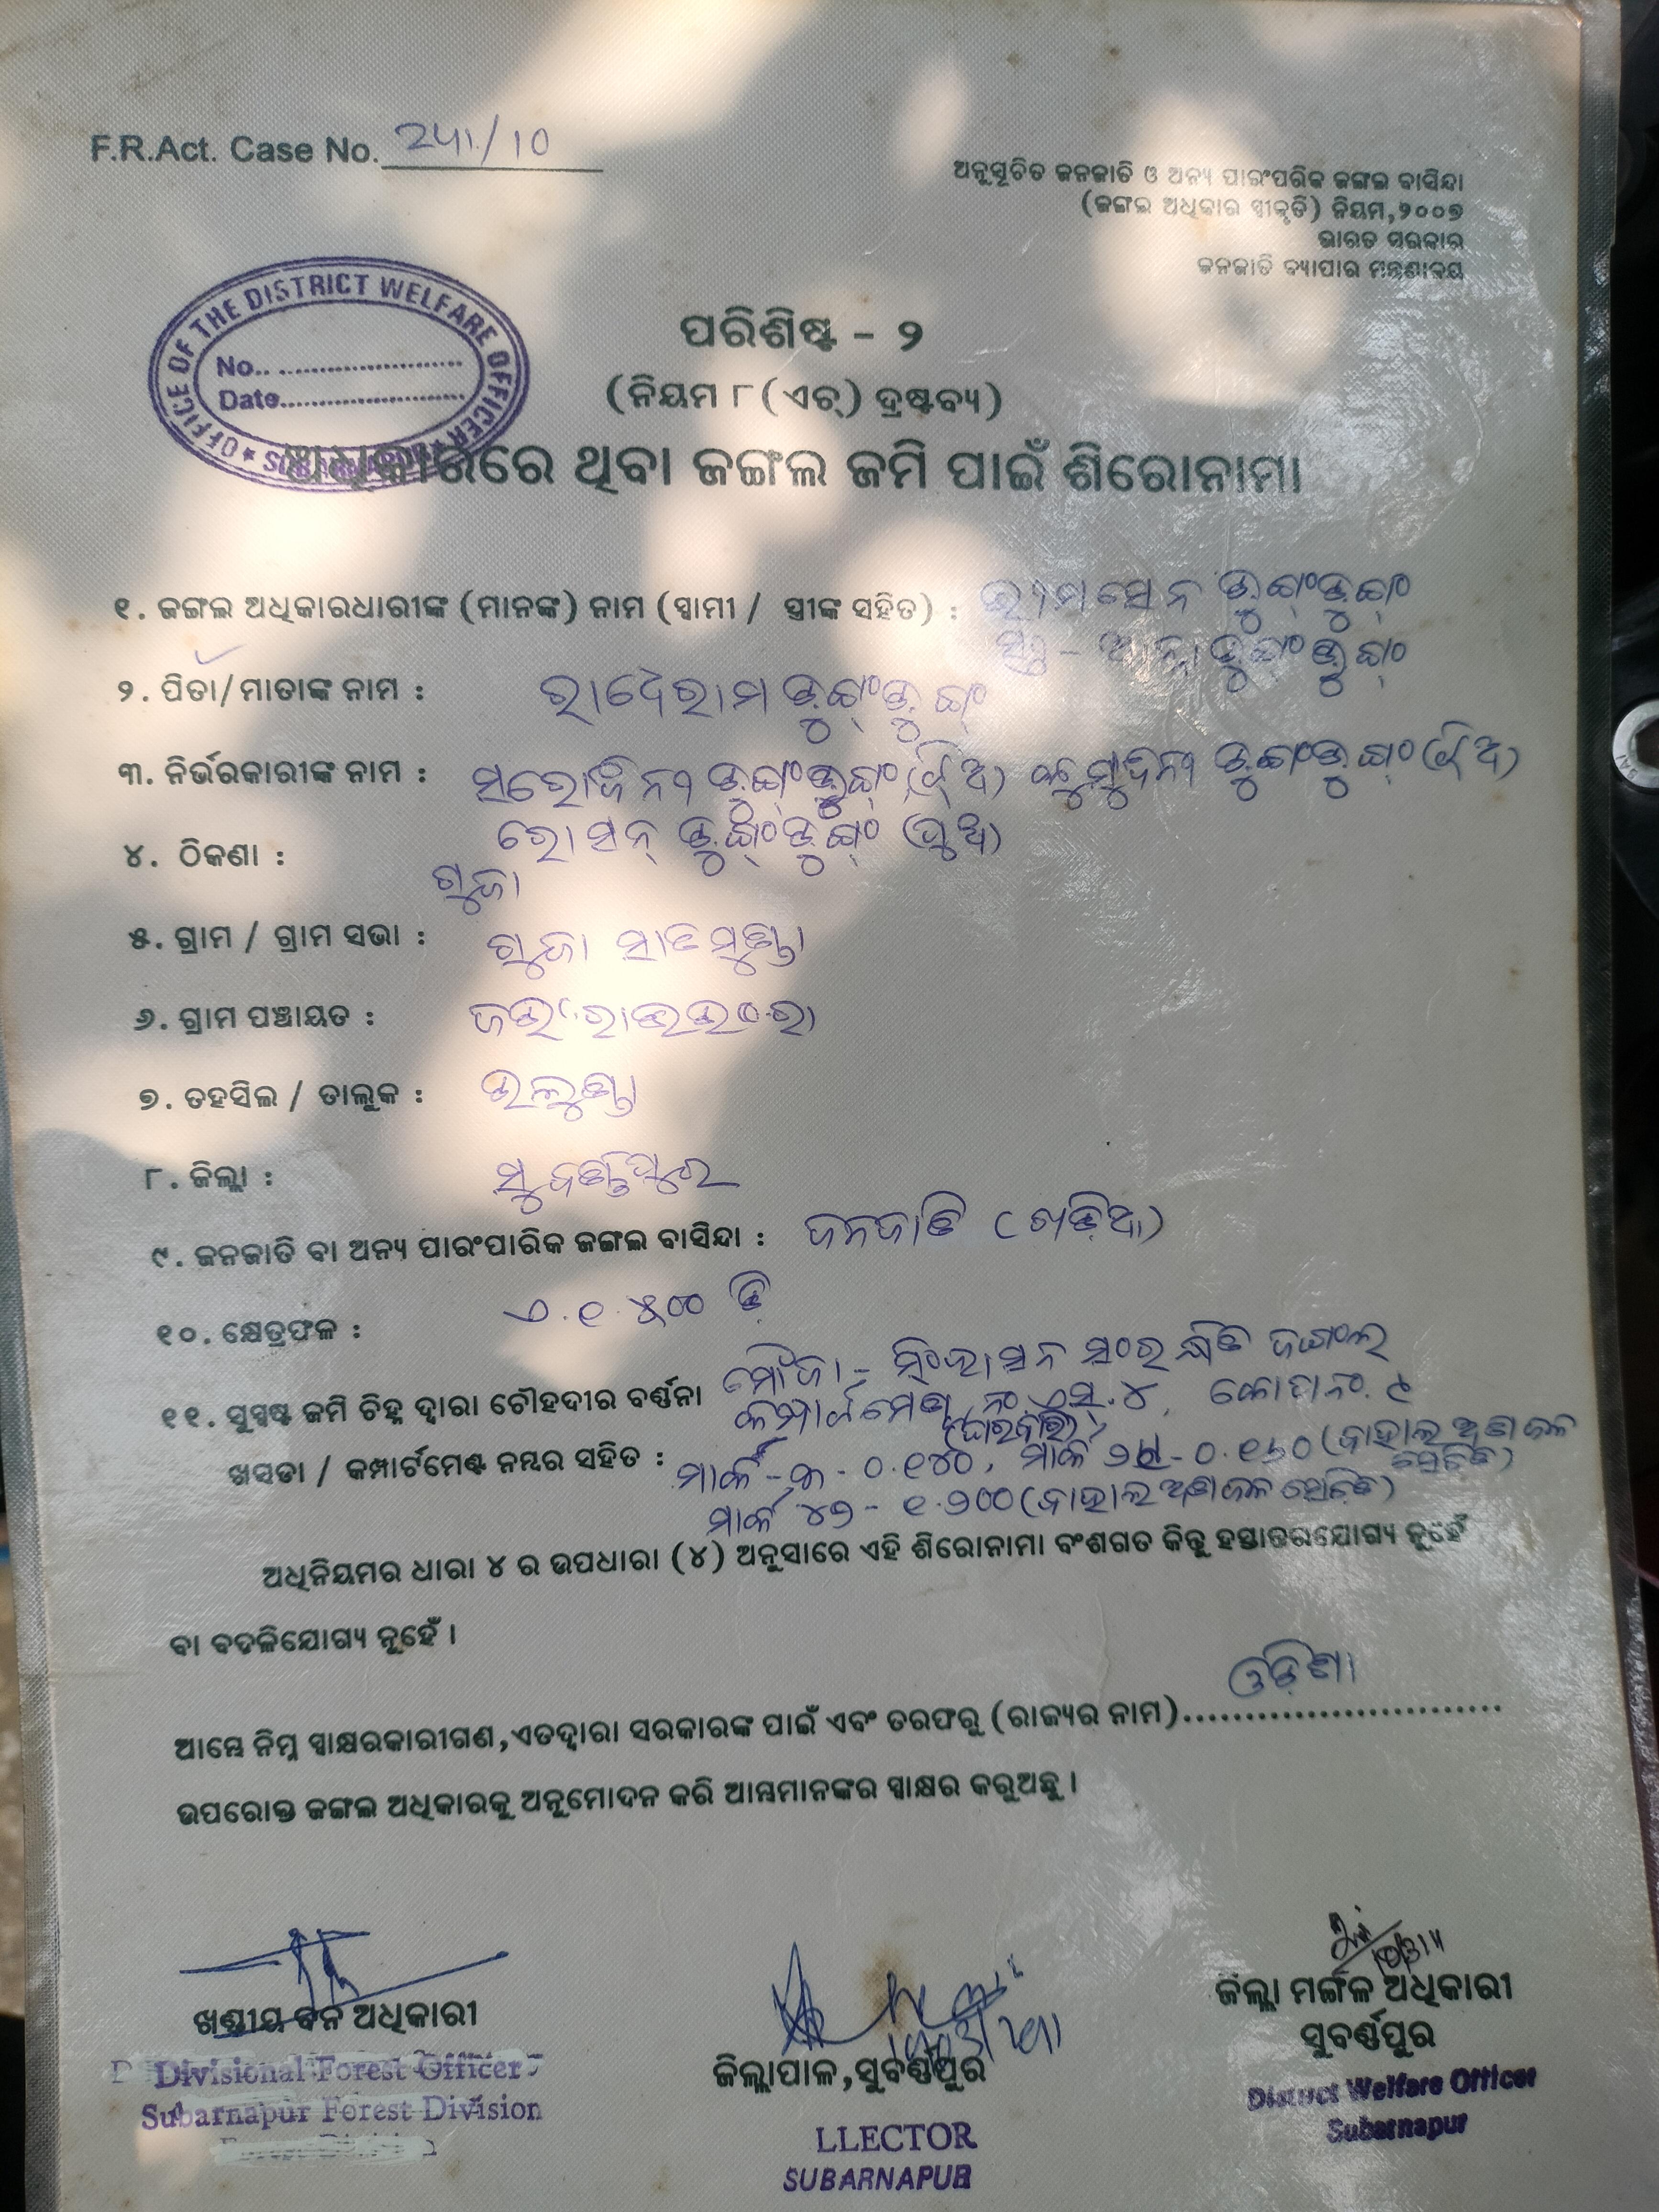 F.R.Act. Case No. 241/10
ଅନୁସୂଚିତ ଜନଜାତି ଓ ଅନ୍ୟ ପାରଂପରିକ ଜଙ୍ଗଲ ବାସିନ୍ଦା
(ଜଙ୍ଗଲ ଅଧିକାର ସ୍ୱୀକୃତି) ନିୟମ,୨୦୦୭
ଭାରତ ସରକାର
ଜନଜାତି ବ୍ୟାପାର ମନ୍ତ୍ରଣାଳୟ
OFFICE OF THE DISTRICT WELFARE OFFICER
No.. ........................
Date........................
ପରିଶିଷ୍ଟ - ୨
(ନିୟମ ୮ (ଏଚ୍) ଦ୍ରଷ୍ଟବ୍ୟ)
ଅଧିକାରରେ ଥିବା ଜଙ୍ଗଲ ଜମି ପାଇଁ ଶିରୋନାମା
୧. ଜଙ୍ଗଲ ଅଧିକାରଧାରୀଙ୍କ (ମାନଙ୍କ) ନାମ (ସ୍ୱାମୀ / ସ୍ତ୍ରୀଙ୍କ ସହିତ) : ଭୀମସେନ ଡୁଙ୍ଗ୍‌ଡୁଙ୍ଗ୍
୨. ପିତା/ମାତାଙ୍କ ନାମ : ରାଧେରାମ ଡୁଙ୍ଗ୍‌ଡୁଙ୍ଗ୍
୩. ନିର୍ଭରକାରୀଙ୍କ ନାମ : ସରୋଜିନୀ ଡୁଙ୍ଗ୍‌ଡୁଙ୍ଗ୍ (ଝିଅ) କୁମୁଦିନୀ ଡୁଙ୍ଗ୍‌ଡୁଙ୍ଗ୍ (ଝିଅ)
ରୋସନ୍ ଡୁଙ୍ଗ୍‌ଡୁଙ୍ଗ୍ (ପୁଅ)
୪. ଠିକଣା : ଗୁଜା
୫. ଗ୍ରାମ / ଗ୍ରାମ ସଭା : ଗୁଜା ସାତମୁଣ୍ଡା
୬. ଗ୍ରାମ ପଞ୍ଚାୟତ :
୭. ତହସିଲ / ତାଲୁକ : ଉଲୁଣ୍ଡା
୮. ଜିଲ୍ଲା : ସୁବର୍ଣ୍ଣପୁର
୯. ଜନଜାତି ବା ଅନ୍ୟ ପାରଂପାରିକ ଜଙ୍ଗଲ ବାସିନ୍ଦା : ଜନଜାତି (ଖଡ଼ିଆ)
୧୦. କ୍ଷେତ୍ରଫଳ : ଏ.୧.୫୦୦ ଡି
୧୧. ସୁସ୍ପଷ୍ଟ ଜମି ଚିହ୍ନ ଦ୍ୱାରା ଚୌହଦୀର ବର୍ଣ୍ଣନା ମୌଜା - ସିଂହାସନ ସଂରକ୍ଷିତ ଜଙ୍ଗଲ
କମ୍ପାର୍ଟମେଣ୍ଟ ନଂ ଏସ୍.୪,
(ଘରବାରି)
ଖସଡା / କମ୍ପାର୍ଟମେଣ୍ଟ ନମ୍ବର ସହିତ : ମାର୍କ - ୦.୧୪୦, ମାର୍କ - ୦.୧୬୦ (ବାହାଲ ଅଣଜଳ ସେଚିତ)
ମାର୍କ ୪୭ - ୧.୨୦୦ (ବାହାଲ ଅଣଜଳ ସେଚିତ)
ଅଧିନିୟମର ଧାରା ୪ ର ଉପଧାରା (୪) ଅନୁସାରେ ଏହି ଶିରୋନାମା ବଂଶଗତ କିନ୍ତୁ ହସ୍ତାନ୍ତରଯୋଗ୍ୟ ନୁହେଁ
ବା ବଦଳିଯୋଗ୍ୟ ନୁହେଁ ।
ଆମ୍ଭେ ନିମ୍ନ ସ୍ୱାକ୍ଷରକାରୀଗଣ,ଏତଦ୍ୱାରା ସରକାରଙ୍କ ପାଇଁ ଏବଂ ତରଫରୁ (ରାଜ୍ୟର ନାମ) ଓଡ଼ିଶା
ଉପରୋକ୍ତ ଜଙ୍ଗଲ ଅଧିକାରକୁ ଅନୁମୋଦନ କରି ଆମ୍ଭମାନଙ୍କର ସ୍ୱାକ୍ଷର କରୁଅଛୁ ।
ଖଣ୍ଡୀୟ ବନ ଅଧିକାରୀ
Divisional Forest Officer
Subarnapur Forest Division
ଜିଲ୍ଲାପାଳ,ସୁବର୍ଣ୍ଣପୁର
LLECTOR
SUBARNAPUR
ଜିଲ୍ଲା ମଙ୍ଗଳ ଅଧିକାରୀ
ସୁବର୍ଣ୍ଣପୁର
District Welfare Officer
Subarnapur